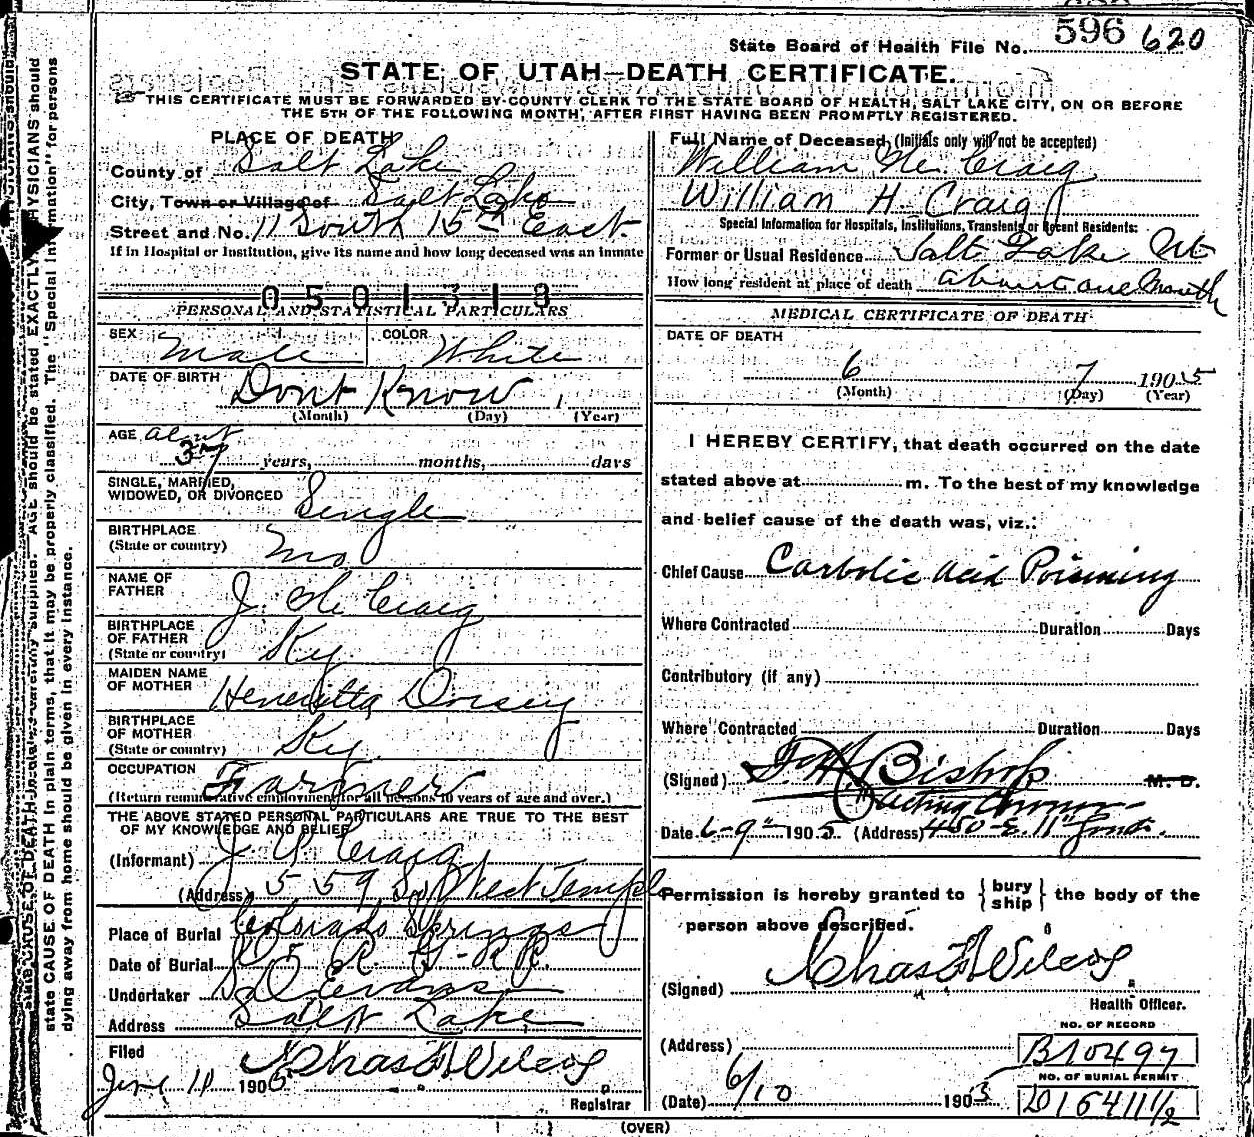 State Board of Health File No. 596 620
STATE OF UTAH—DEATH CERTIFICATE.
THIS CERTIFICATE MUST BE FORWARDED BY COUNTY CLERK TO THE STATE BOARD OF HEALTH, SALT LAKE CITY, ON OR BEFORE
THE 5TH OF THE FOLLOWING MONTH, AFTER FIRST HAVING BEEN PROMPTLY REGISTERED.
PLACE OF DEATH
County of Salt Lake
City, Town or Village of Salt Lake
Street and No. 11 South 15th East
If in Hospital or Institution, give its name and how long deceased was an inmate
0501313
PERSONAL AND STATISTICAL PARTICULARS
SEX Male COLOR White
DATE OF BIRTH Dont Know
(Month) (Day) (Year)
AGE about
37 years, months, days
SINGLE, MARRIED,
WIDOWED, OR DIVORCED Single
BIRTHPLACE
(State or country) Mo
NAME OF
FATHER J. Mc Craig
BIRTHPLACE
OF FATHER
(State or country) Ky.
MAIDEN NAME
OF MOTHER Henrietta Dorsey
BIRTHPLACE
OF MOTHER
(State or country) Ky.
OCCUPATION Farmer
(Return remunerative employment for all persons 10 years of age and over.)
THE ABOVE STATED PERSONAL PARTICULARS ARE TRUE TO THE BEST
OF MY KNOWLEDGE AND BELIEF
(Informant) J Craig
(Address) 559 So West Temple
Place of Burial Colorado Springs
Date of Burial R. G. RR.
Undertaker S D Evans
Address Salt Lake
Filed
June 11 1905 Chas F Wilcox
Registrar
Full Name of Deceased, (Initials only will not be accepted)
William Mc Craig
William H Craig
Special Information for Hospitals, Institutions, Transients or Recent Residents:
Former or Usual Residence Salt Lake Ut
How long resident at place of death about one Month
MEDICAL CERTIFICATE OF DEATH
DATE OF DEATH
6 7 1905
(Month) (Day) (Year)
I HEREBY CERTIFY, that death occurred on the date
stated above at m. To the best of my knowledge
and belief cause of the death was, viz.:
Chief Cause Carbolic Acid Poisoning
Where Contracted Duration Days
Contributory (if any)
Where Contracted Duration Days
(Signed) F. H. Bishop M. D.
Acting Coroner
Date 6-9" 1905 (Address) 450 E. 11"
Permission is hereby granted to { bury ship } the body of the
person above described.
(Signed) Chas F Wilcox
Health Officer.
NO. OF RECORD
(Address) B10497
NO. OF BURIAL PERMIT
(Date) 6/10 1905 D16411½
(OVER)
state CAUSE OF DEATH in plain terms, that it may be properly classified. The "Special Information" for persons
dying away from home should be given in every instance.